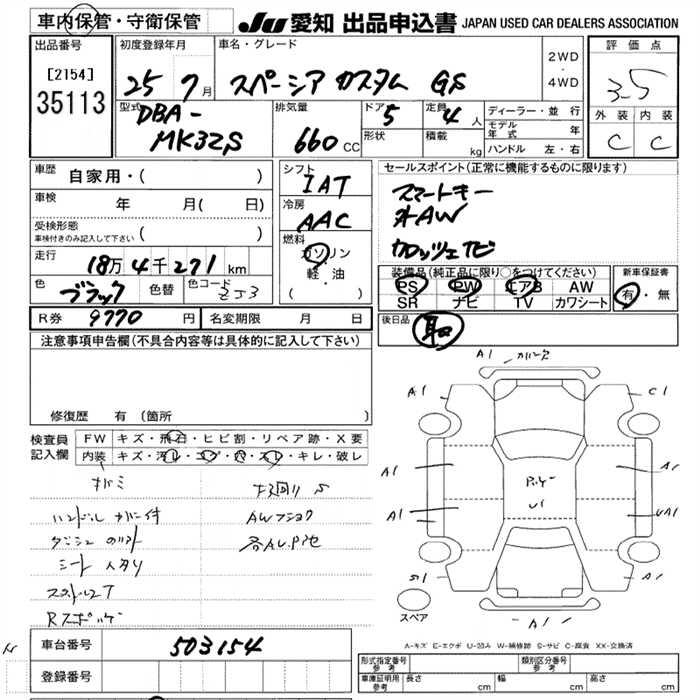 車内保管・守衛保管
JU 愛知 出品申込書 JAPAN USED CAR DEALERS ASSOCIATION
出品番号
[2154]
35113
初度登録年月
25 7月
車名・グレード
スペーシア カスタム GS
2WD
・
4WD
評価点
3.5
外装 内装
C C
型式
DBA-
MK32S
排気量
660 CC
ドア
5
形状
定員
4人
積載
kg
ディーラー・並行
モデル年式 年
ハンドル 左・右
車歴
自家用・( )
車検
年 月( 日)
受検形態
車検付きのみ記入して下さい ( )
走行
18万4千271km
色
ブラック
色替
色コード
ZJ3
シフト
IAT
冷房
AAC
燃料
ガソリン
・
軽油
( )
セールスポイント(正常に機能するものに限ります)
スマートキー
オAW
カロッツェナビ
装備品(純正品に限り○をつけてください)
PS PW エアB AW
SR ナビ TV カワシート
新車保証書
有・無
後日品
取
R券 9770円
名変期限 月 日
注意事項申告欄(不具合内容等は具体的に記入して下さい)
修復歴 有(箇所 )
検査員記入欄
FW キズ・飛石・ヒビ割・リペア跡・X要
内装 キズ・汚レ・コゲ・穴・スレ・キレ・破レ
ハンドルカバー付
シート
AWフショク
A1
A1
C1
A1
A1
A1
UA1
S1
A1
A1
スペア
A-キズ E-エクボ U-凹み W-補修跡 S-サビ C-腐食 XX-交換済
車台番号 503154
登録番号
形式指定番号参考
類別区分番号参考
車庫証明用参考
長さ cm
幅 cm
高さ cm